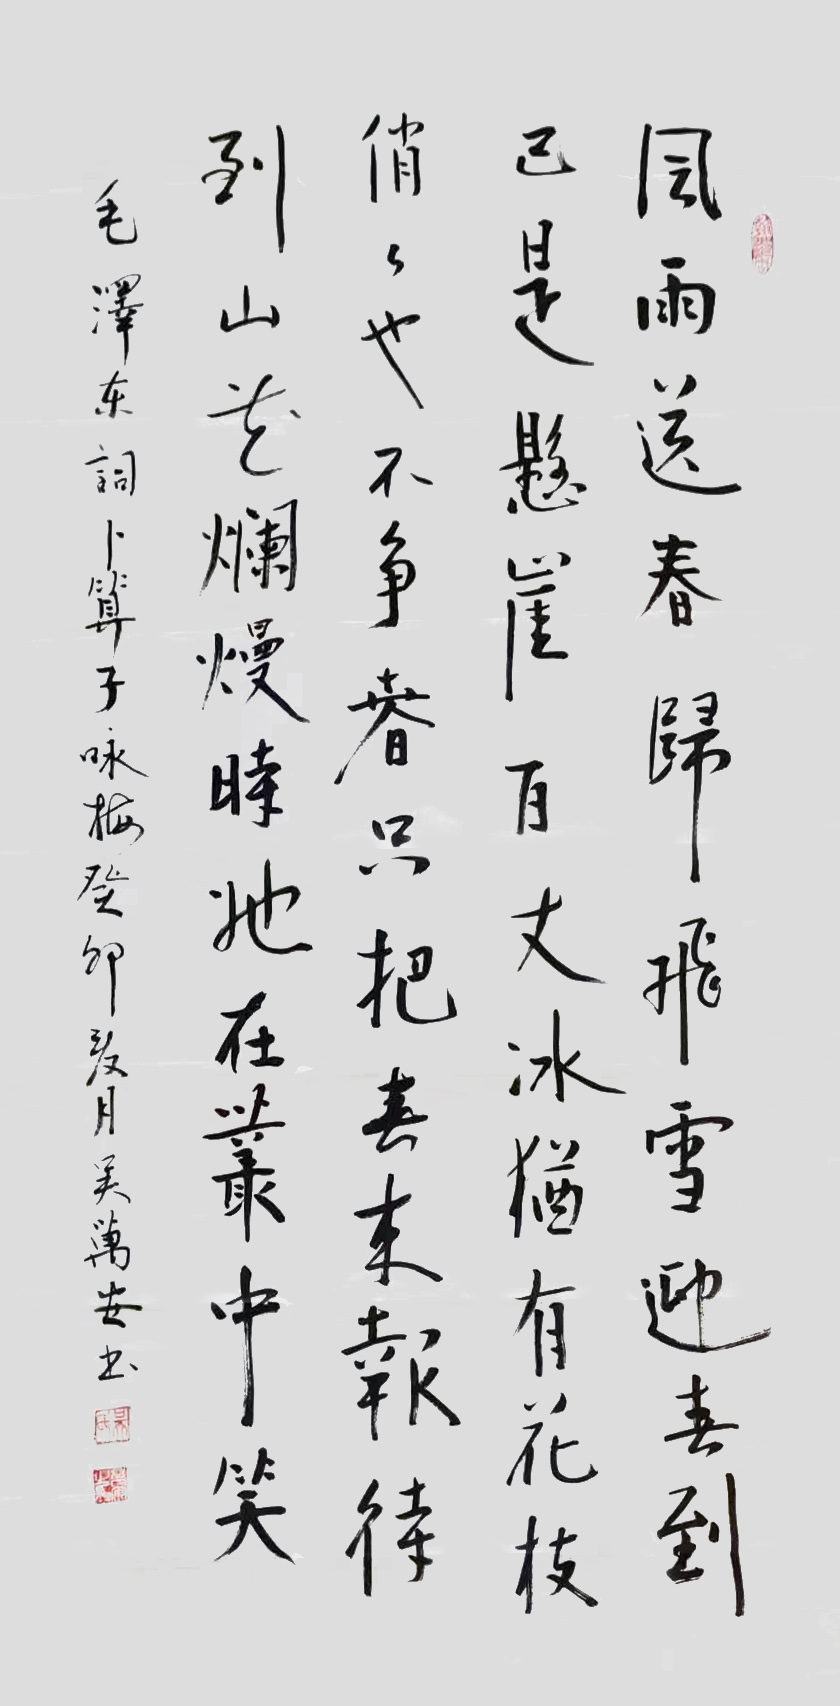 風雨送春歸飛雪迎春到
已是懸崖百丈冰猶有花枝
俏々也不争春只把春来報待
到山花爛熳時她在叢中笑
毛澤东詞卜算子咏梅癸卯葭月吳萬安书